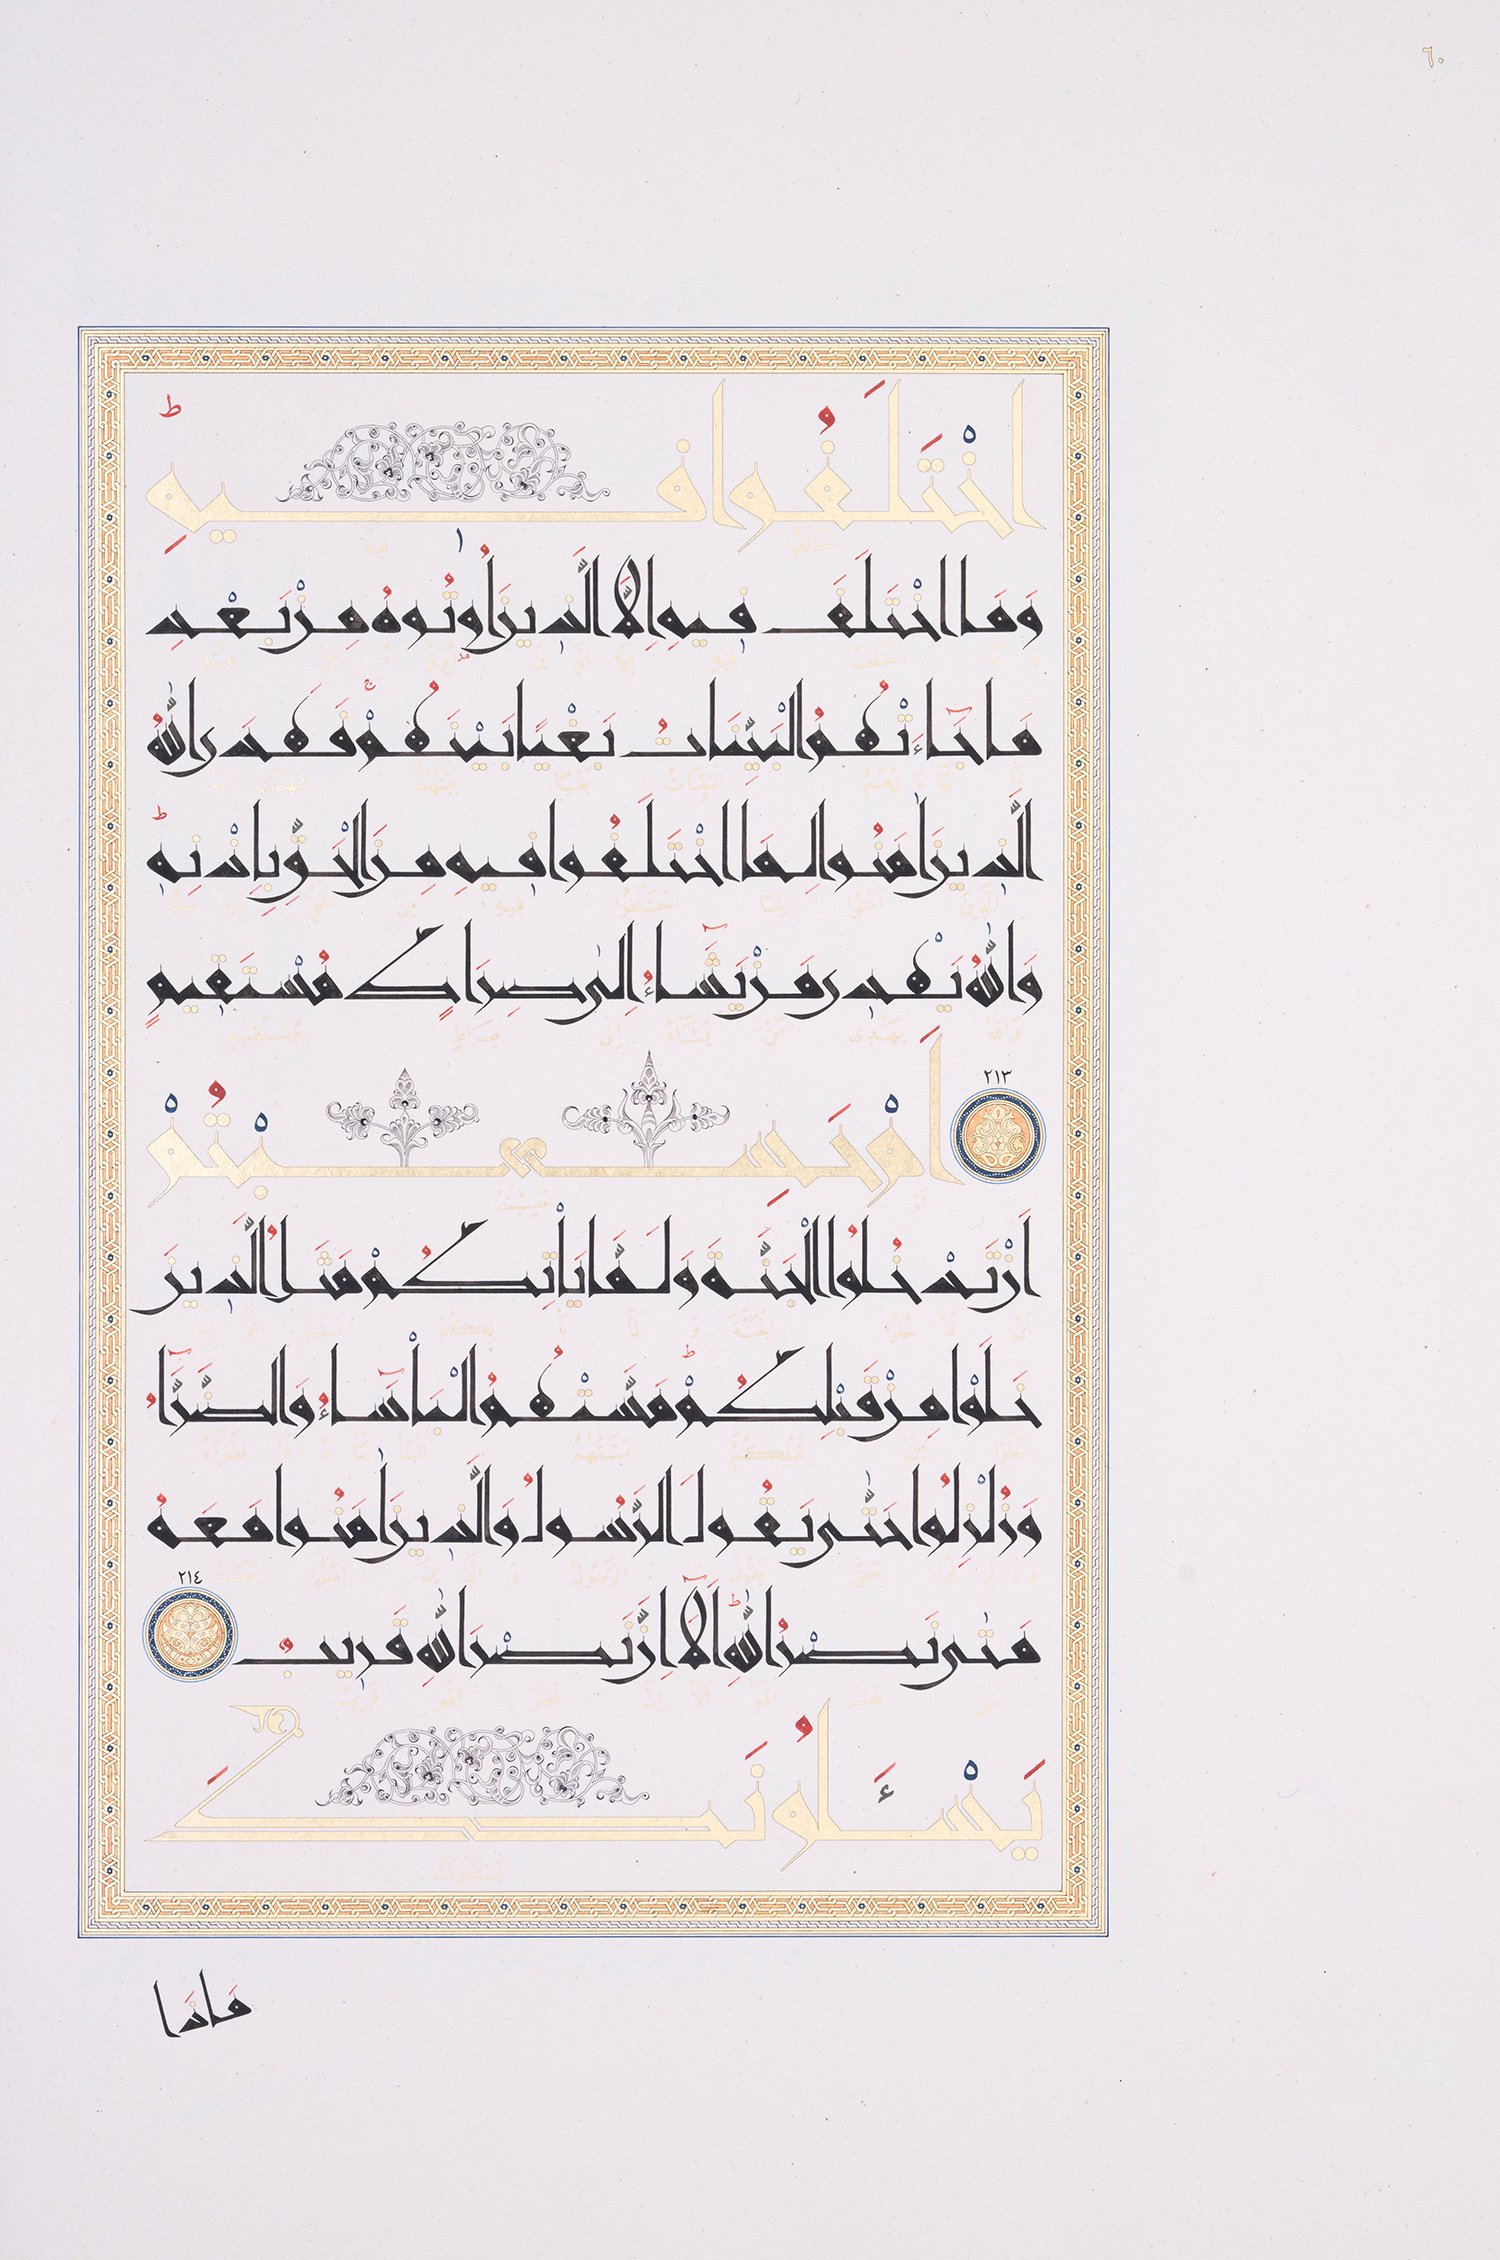 ٦٠
اخْتَلَفُوا فِيهِ ۗ
وَمَا اخْتَلَفَ فِيهِ اِلَّا الَّذِينَ اُوتُوهُ مِنْ بَعْدِ
مَا جَآءَتْهُمُ الْبَيِّنَاتُ بَغْيًا بَيْنَهُمْ ۚ فَهَدَى اللّٰهُ
الَّذِينَ اٰمَنُوا لِمَا اخْتَلَفُوا فِيهِ مِنَ الْحَقِّ بِاِذْنِهِ ۗ
وَاللّٰهُ يَهْدِي مَنْ يَشَآءُ اِلٰى صِرَاطٍ مُسْتَقِيمٍ
٢١٣ اَمْ حَسِبْتُمْ
اَنْ تَدْخُلُوا الْجَنَّةَ وَلَمَّا يَأْتِكُمْ مَثَلُ الَّذِينَ
خَلَوْا مِنْ قَبْلِكُمْ ۗ مَسَّتْهُمُ الْبَأْسَآءُ وَالضَّرَّآءُ
وَزُلْزِلُوا حَتّٰى يَقُولَ الرَّسُولُ وَالَّذِينَ اٰمَنُوا مَعَهُ
مَتٰى نَصْرُ اللّٰهِ ۗ اَلَآ اِنَّ نَصْرَ اللّٰهِ قَرِيبٌ ٢١٤
يَسْـَٔلُونَكَ
مَاذَا